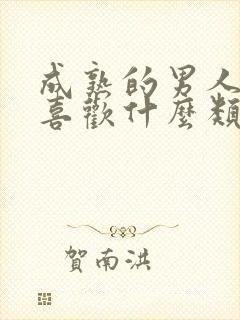 成熟的男人
喜歡什麼類
賀南洪